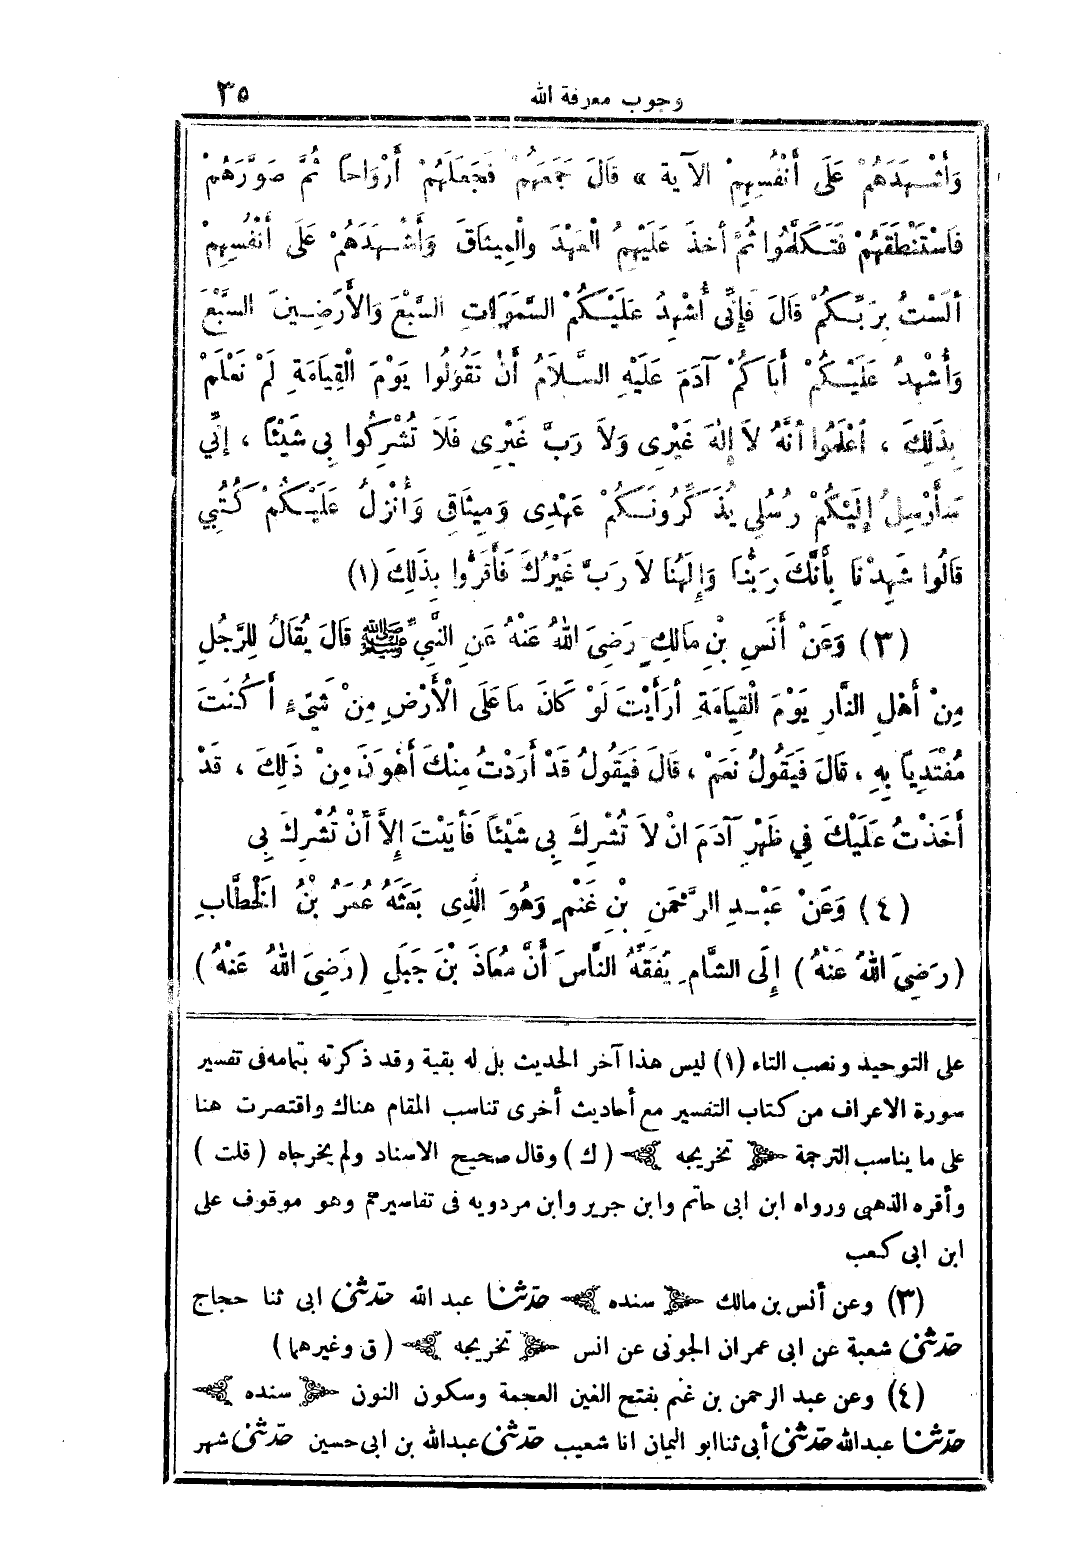 وجوب معرفة الله ٣٥
وَأَشْهَدَهُمْ عَلَى أَنْفُسِهِمْ الآية » قَالَ جَمَعَهُمْ فَجَعَلَهُمْ أَرْوَاحًا ثُمَّ صَوَّرَهُمْ
فَاسْتَنْطَقَهُمْ فَتَكَلَّمُوا ثُمَّ أَخَذَ عَلَيْهِمُ الْعَهْدَ وَالْمِيثَاقَ وَأَشْهَدَهُمْ عَلَى أَنْفُسِهِمْ
أَلَسْتُ بِرَبِّكُمْ قَالَ فَإِنِّي أُشْهِدُ عَلَيْكُمُ السَّمَوَاتِ السَّبْعَ وَالأَرَضِينَ السَّبْعَ
وَأُشْهِدُ عَلَيْكُمْ أَبَاكُمْ آدَمَ عَلَيْهِ السَّلاَمُ أَنْ تَقُولُوا يَوْمَ الْقِيَامَةِ لَمْ نَعْلَمْ
بِذَلِكَ ، اعْلَمُوا أَنَّهُ لاَ إِلَهَ غَيْرِى وَلاَ رَبَّ غَيْرِى فَلاَ تُشْرِكُوا بِى شَيْئًا ، إِنِّي
سَأُرْسِلُ إِلَيْكُمْ رُسُلِي يُذَكِّرُونَكُمْ عَهْدِى وَمِيثَاقِى وَأُنْزِلُ عَلَيْكُمْ كُتُبِي
قَالُوا شَهِدْنَا بِأَنَّكَ رَبُّنَا وَإِلَهُنَا لاَ رَبَّ غَيْرُكَ فَأَقَرُّوا بِذَلِكَ (١)
(٣) وَعَنْ أَنَسِ بْنِ مَالِكٍ رَضِيَ اللهُ عَنْهُ عَنِ النَّبِيِّ ﷺ قَالَ يُقَالُ لِلرَّجُلِ
مِنْ أَهْلِ النَّارِ يَوْمَ الْقِيَامَةِ أَرَأَيْتَ لَوْ كَانَ مَا عَلَى الْأَرْضِ مِنْ شَيْءٍ أَكُنْتَ
مُفْتَدِيًا بِهِ ، قَالَ فَيَقُولُ نَعَمْ ، قَالَ فَيَقُولُ قَدْ أَرَدْتُ مِنْكَ أَهْوَنَ مِنْ ذَلِكَ ، قَدْ
أَخَذْتُ عَلَيْكَ فِي ظَهْرِ آدَمَ انْ لاَ تُشْرِكَ بِى شَيْئًا فَأَبَيْتَ إِلاَّ أَنْ تُشْرِكَ بِى
(٤) وَعَنْ عَبْدِ الرَّحْمَنِ بْنِ غَنْمٍ وَهُوَ الَّذِى بَعَثَهُ عُمَرُ بْنُ الْخَطَّابِ
(رَضِيَ اللهُ عَنْهُ) إِلَى الشَّامِ يُفَقِّهُ النَّاسَ أَنَّ مُعَاذَ بْنَ جَبَلٍ (رَضِيَ اللهُ عَنْهُ)
على التوحيد ونصب التاء (١) ليس هذا آخر الحديث بل له بقية وقد ذكرته بتمامه فى تفسير
سورة الاعراف من كتاب التفسير مع أحاديث أخرى تناسب المقام هناك واقتصرت هنا
على ما يناسب الترجمة تخريجه (ك) وقال صحيح الاسناد ولم يخرجاه (قلت)
وأقره الذهبى ورواه ابن ابى حاتم وابن جرير وابن مردويه فى تفاسيرهم وهو موقوف على
ابن ابى كعب
(٣) وعن أنس بن مالك سنده حدّثنا عبد الله حدّثنى ابى ثنا حجاج
حدّثنى شعبة عن ابى عمران الجونى عن انس تخريجه (ق وغيرهما)
(٤) وعن عبد الرحمن بن غنم بفتح الغين المعجمة وسكون النون سنده
حدّثنا عبدالله حدّثنى أبى ثنا ابو اليمان انا شعيب حدّثنى عبدالله بن ابى حسين حدّثنى شهر